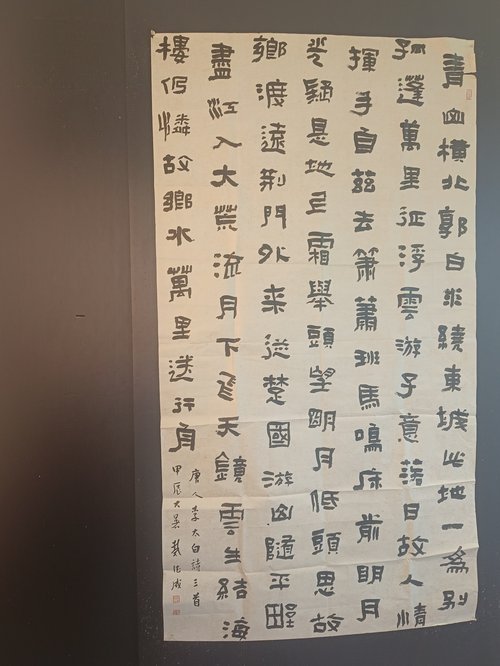 青山橫北郭白水繞東城此地一為別
孤蓬萬里征浮雲游子意落日故人情
揮手自茲去蕭蕭班馬鳴床前明月
光疑是地上霜舉頭望明月低頭思故
鄉渡遠荊門外來從楚國游山隨平野
盡江入大荒流月下飛天鏡雲生結海
樓仍憐故鄉水萬里送行舟
唐人李太白詩三首
甲辰大暑戴